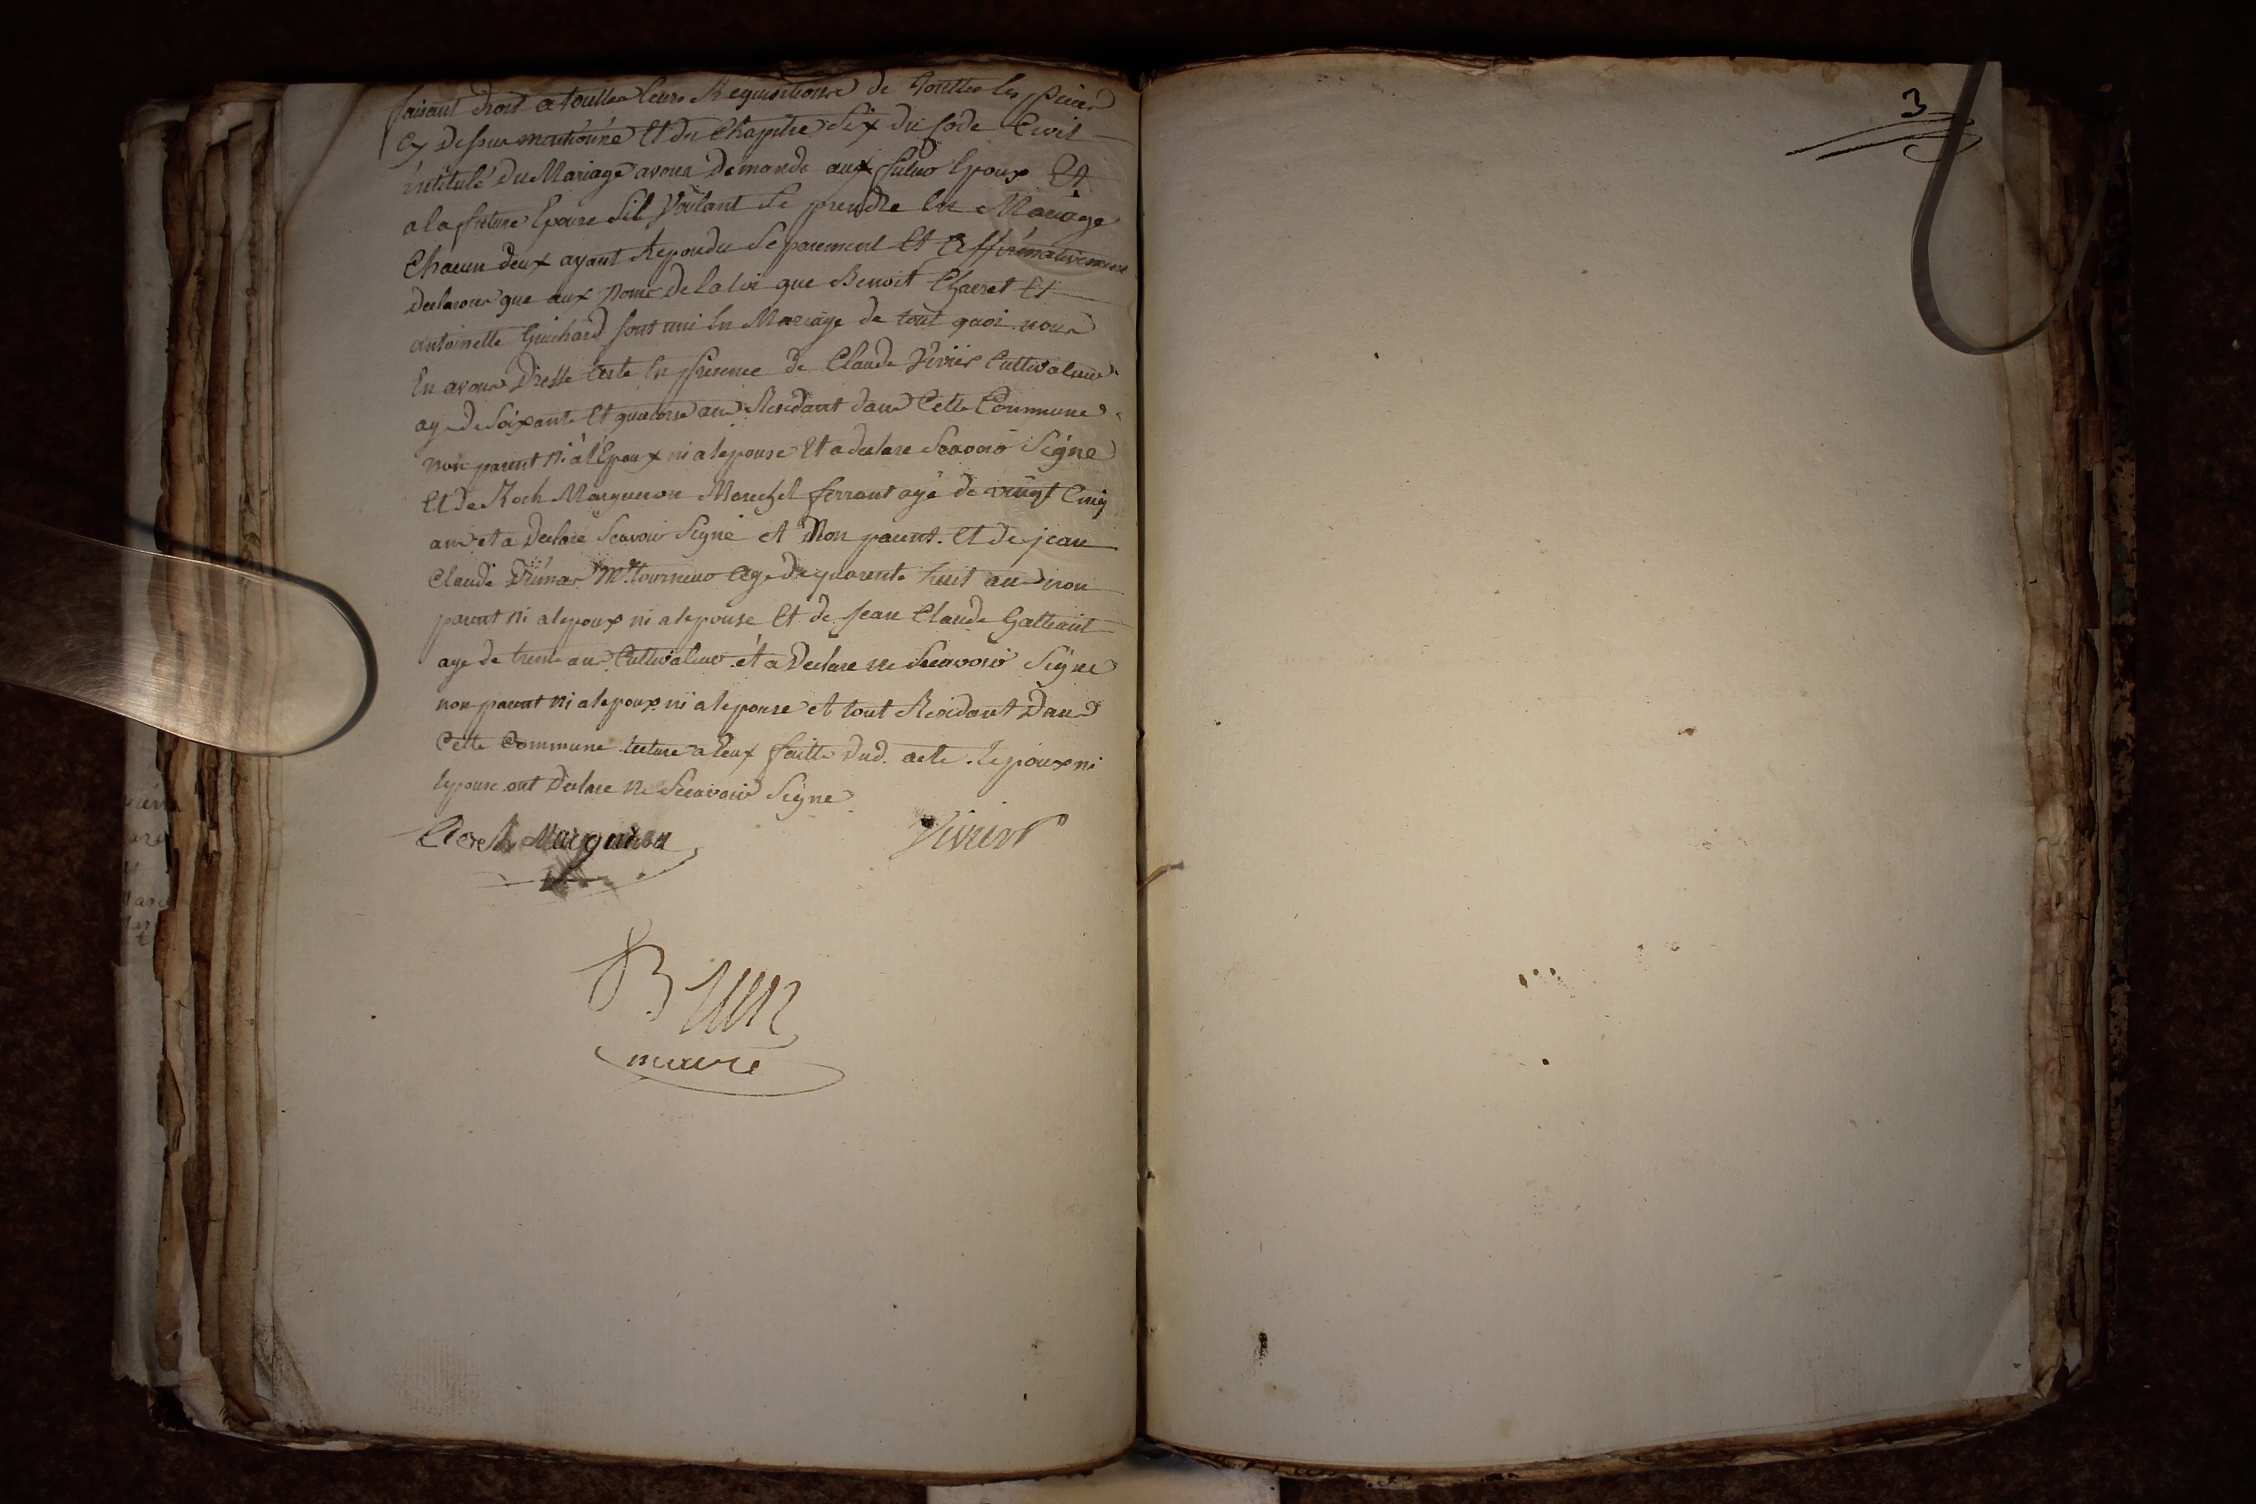 faisant droit a toutte leurs Requisitions de Toutte les pieces
Cy Dessus mentionné Et du Chapitre Six du Code Civil
intitulé Du Mariage avons Demande aux futur Epoux Et
a la future Epouse Sil Voulant Se prendre En Mariage
Chacun deux ayant Repondu Separement Et affirmativement
Declarons que aux Nom De la loi que Benoit Charret Et
antoinette Guichard sont uni En Mariage de tout quoi nous
En avons Dressé acte En presence de Claude Vivier Cultivateur
age De Soixante Et quatorse ans Residant dans Cette Commune
non parent ni a l'Epoux ni a lepouse Et a declare Scavoir Signe
Et de Roch Marguinon Marechel ferrant agé de vingt Cinq
ans et a Declaré Scavoir Signé et Non parent. Et de jean
Claude Mr. tourneur age de quarente huit ans non
parent ni a lepoux ni a lepouse Et de Jean Claude
age de trente ans Cultivateur et a Declare ne Scavoir Signe
non parent ni a lepoux ni a lepouse et tout Residant Dans
Cette Commune lecture a Eux faitte dud. acte. lepoux ni
lepouse ont Declare ne Scavoir Signe
Roch Marguinon Vivier
Brun
maire
3